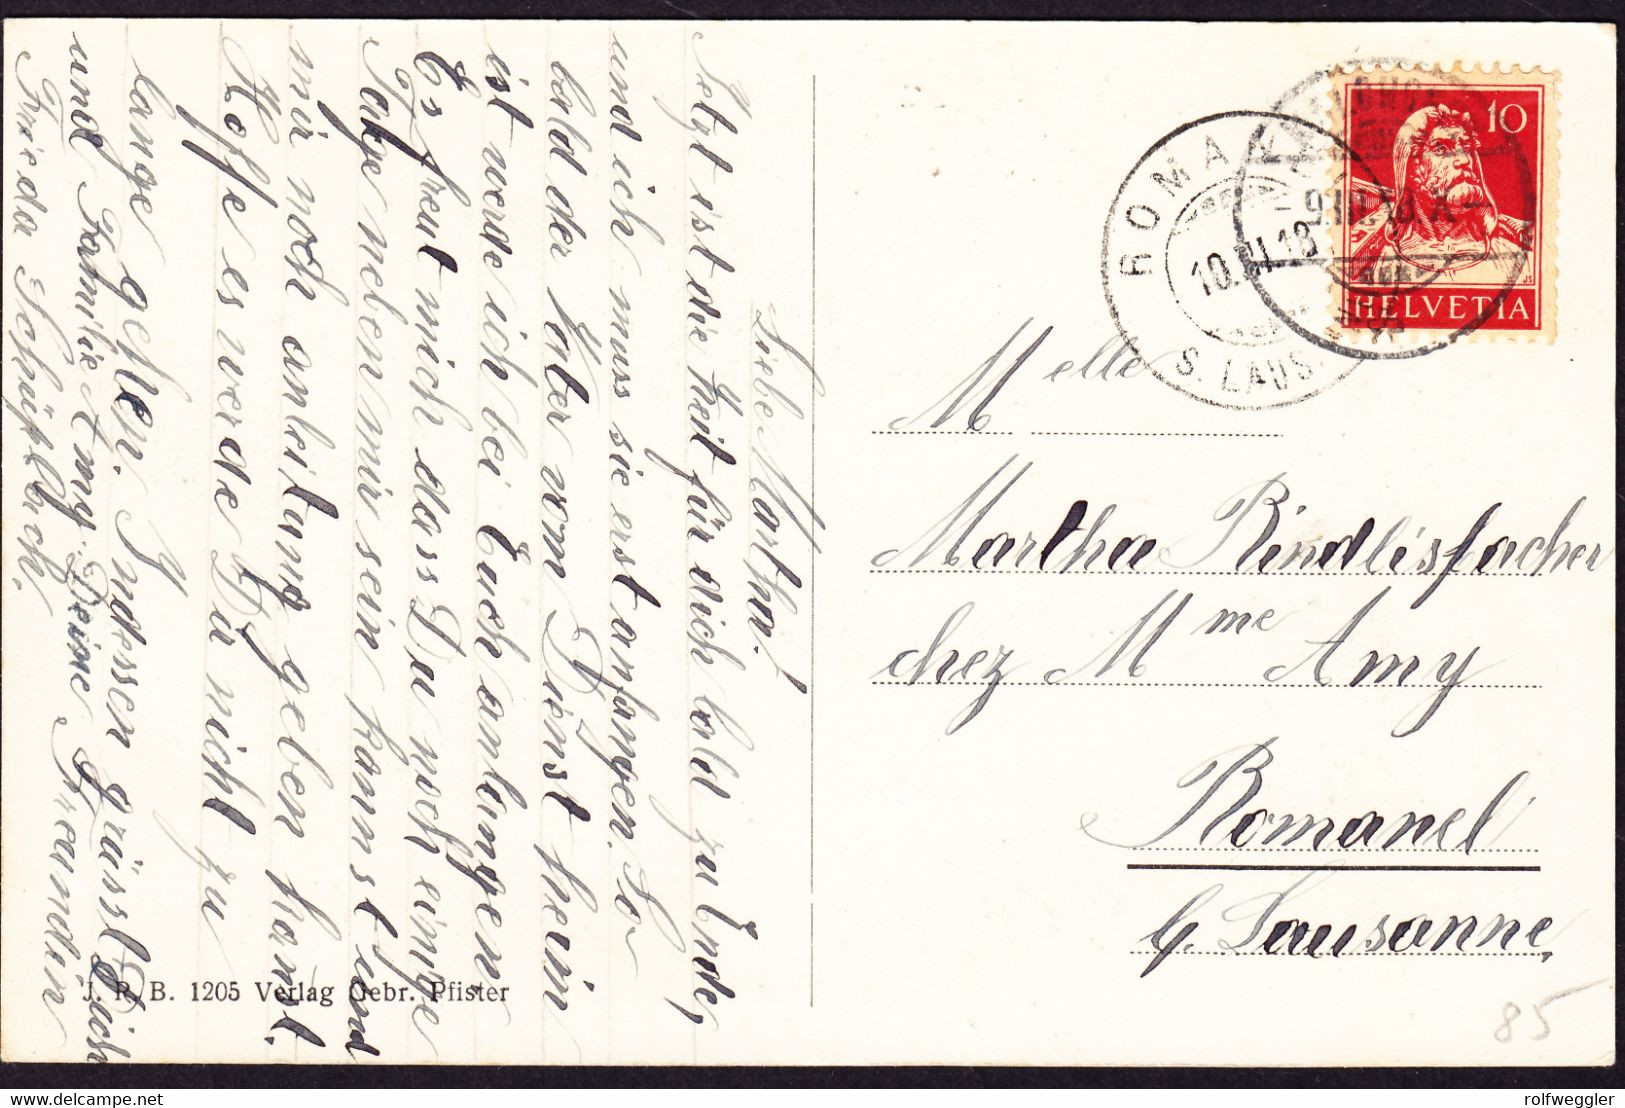 Liebe Martha!
Jetzt ist die Zeit für dich bald zu Ende,
und ich muss sie erst anfangen. So
bald der Vater vom Dienst heim
ist werde ich bei Euch anlangen
Es freut mich dass Du noch einige
Tage neben mir sein kannst und
mir noch anleitung geben kannst.
Hoffe es werde Dir nicht zu
lange gehen. Indessen grüsst Dich
und Familie Amy Deine Freundin
Frieda Schüpbach.
J. R. B. 1205 Verlag Gebr. Pfister
10
HELVETIA
ROMANEL
S. LAUS.
10.VII.18
Melle
Martha Rindlisfacher
chez Mme Amy
Romanel
b. Lausanne.
85
delcampe.net
rolfweggler